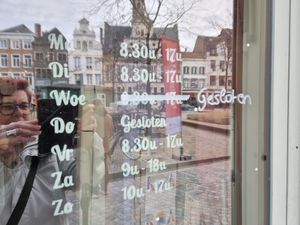 Ma 8.30u - 17u
Di 8.30u - 17u
Woe 8.30u - 17u Gesloten
Do Gesloten
Vr 8.30u - 17u
Za 9u - 18u
Zo 10u - 17u